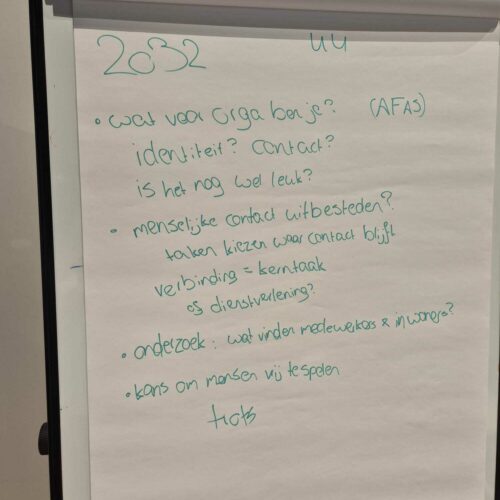 2032 UU
• wat voor orga ben je? (AFAS)
identiteit? contact?
is het nog wel leuk?
• menselijke contact uitbesteden?
taken kiezen waar contact blijft
verbinding = kerntaak
of dienstverlening?
• onderzoek: wat vinden medewerkers & inwoners?
• kans om mensen vrij te spelen
trots